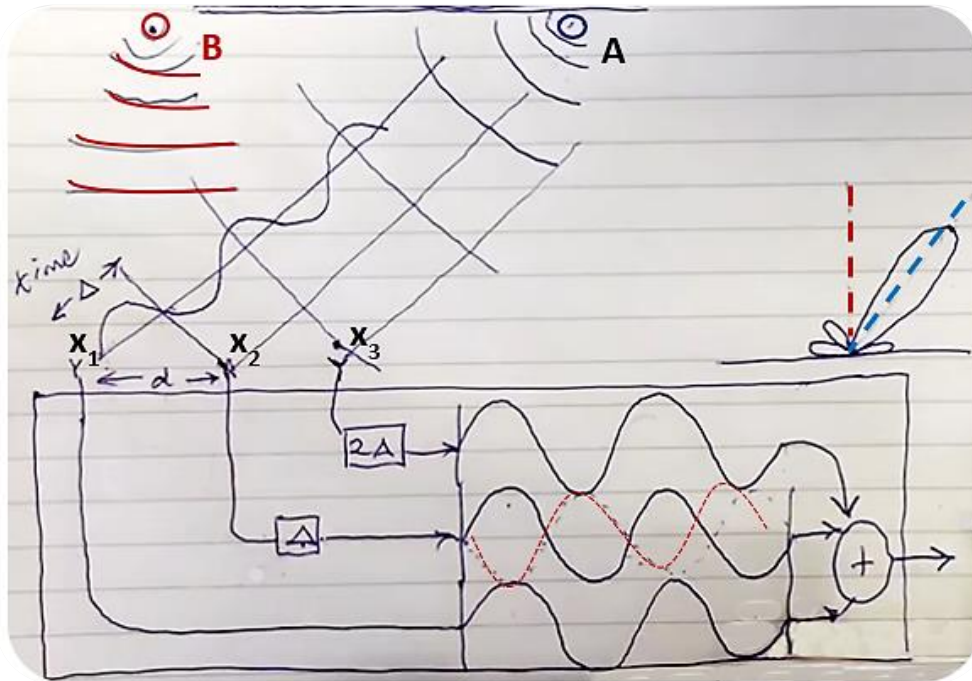 B
A
time
Δ
x₁
x₂
x₃
d
2Δ
Δ
+